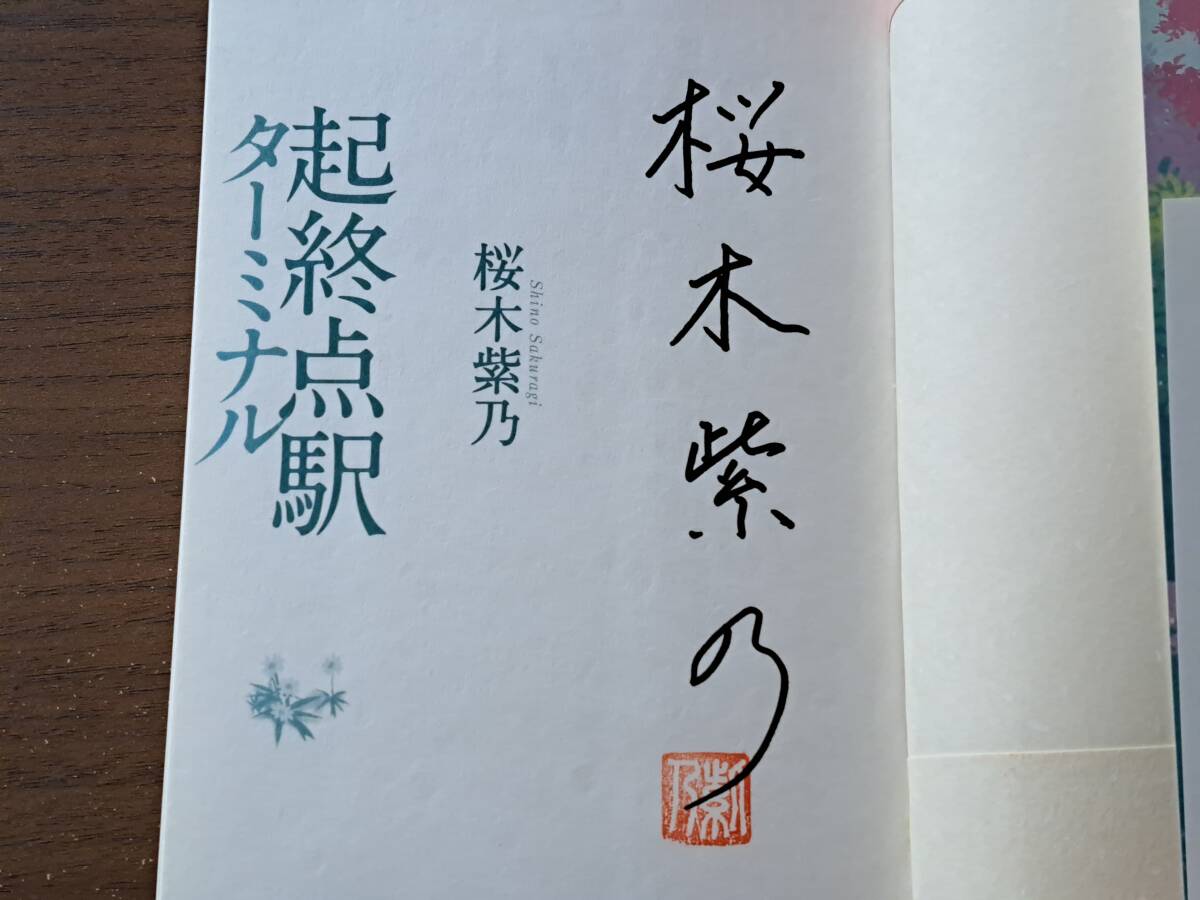 桜木紫乃
紫乃
Shino Sakuragi
桜木紫乃
起終点駅
ターミナル